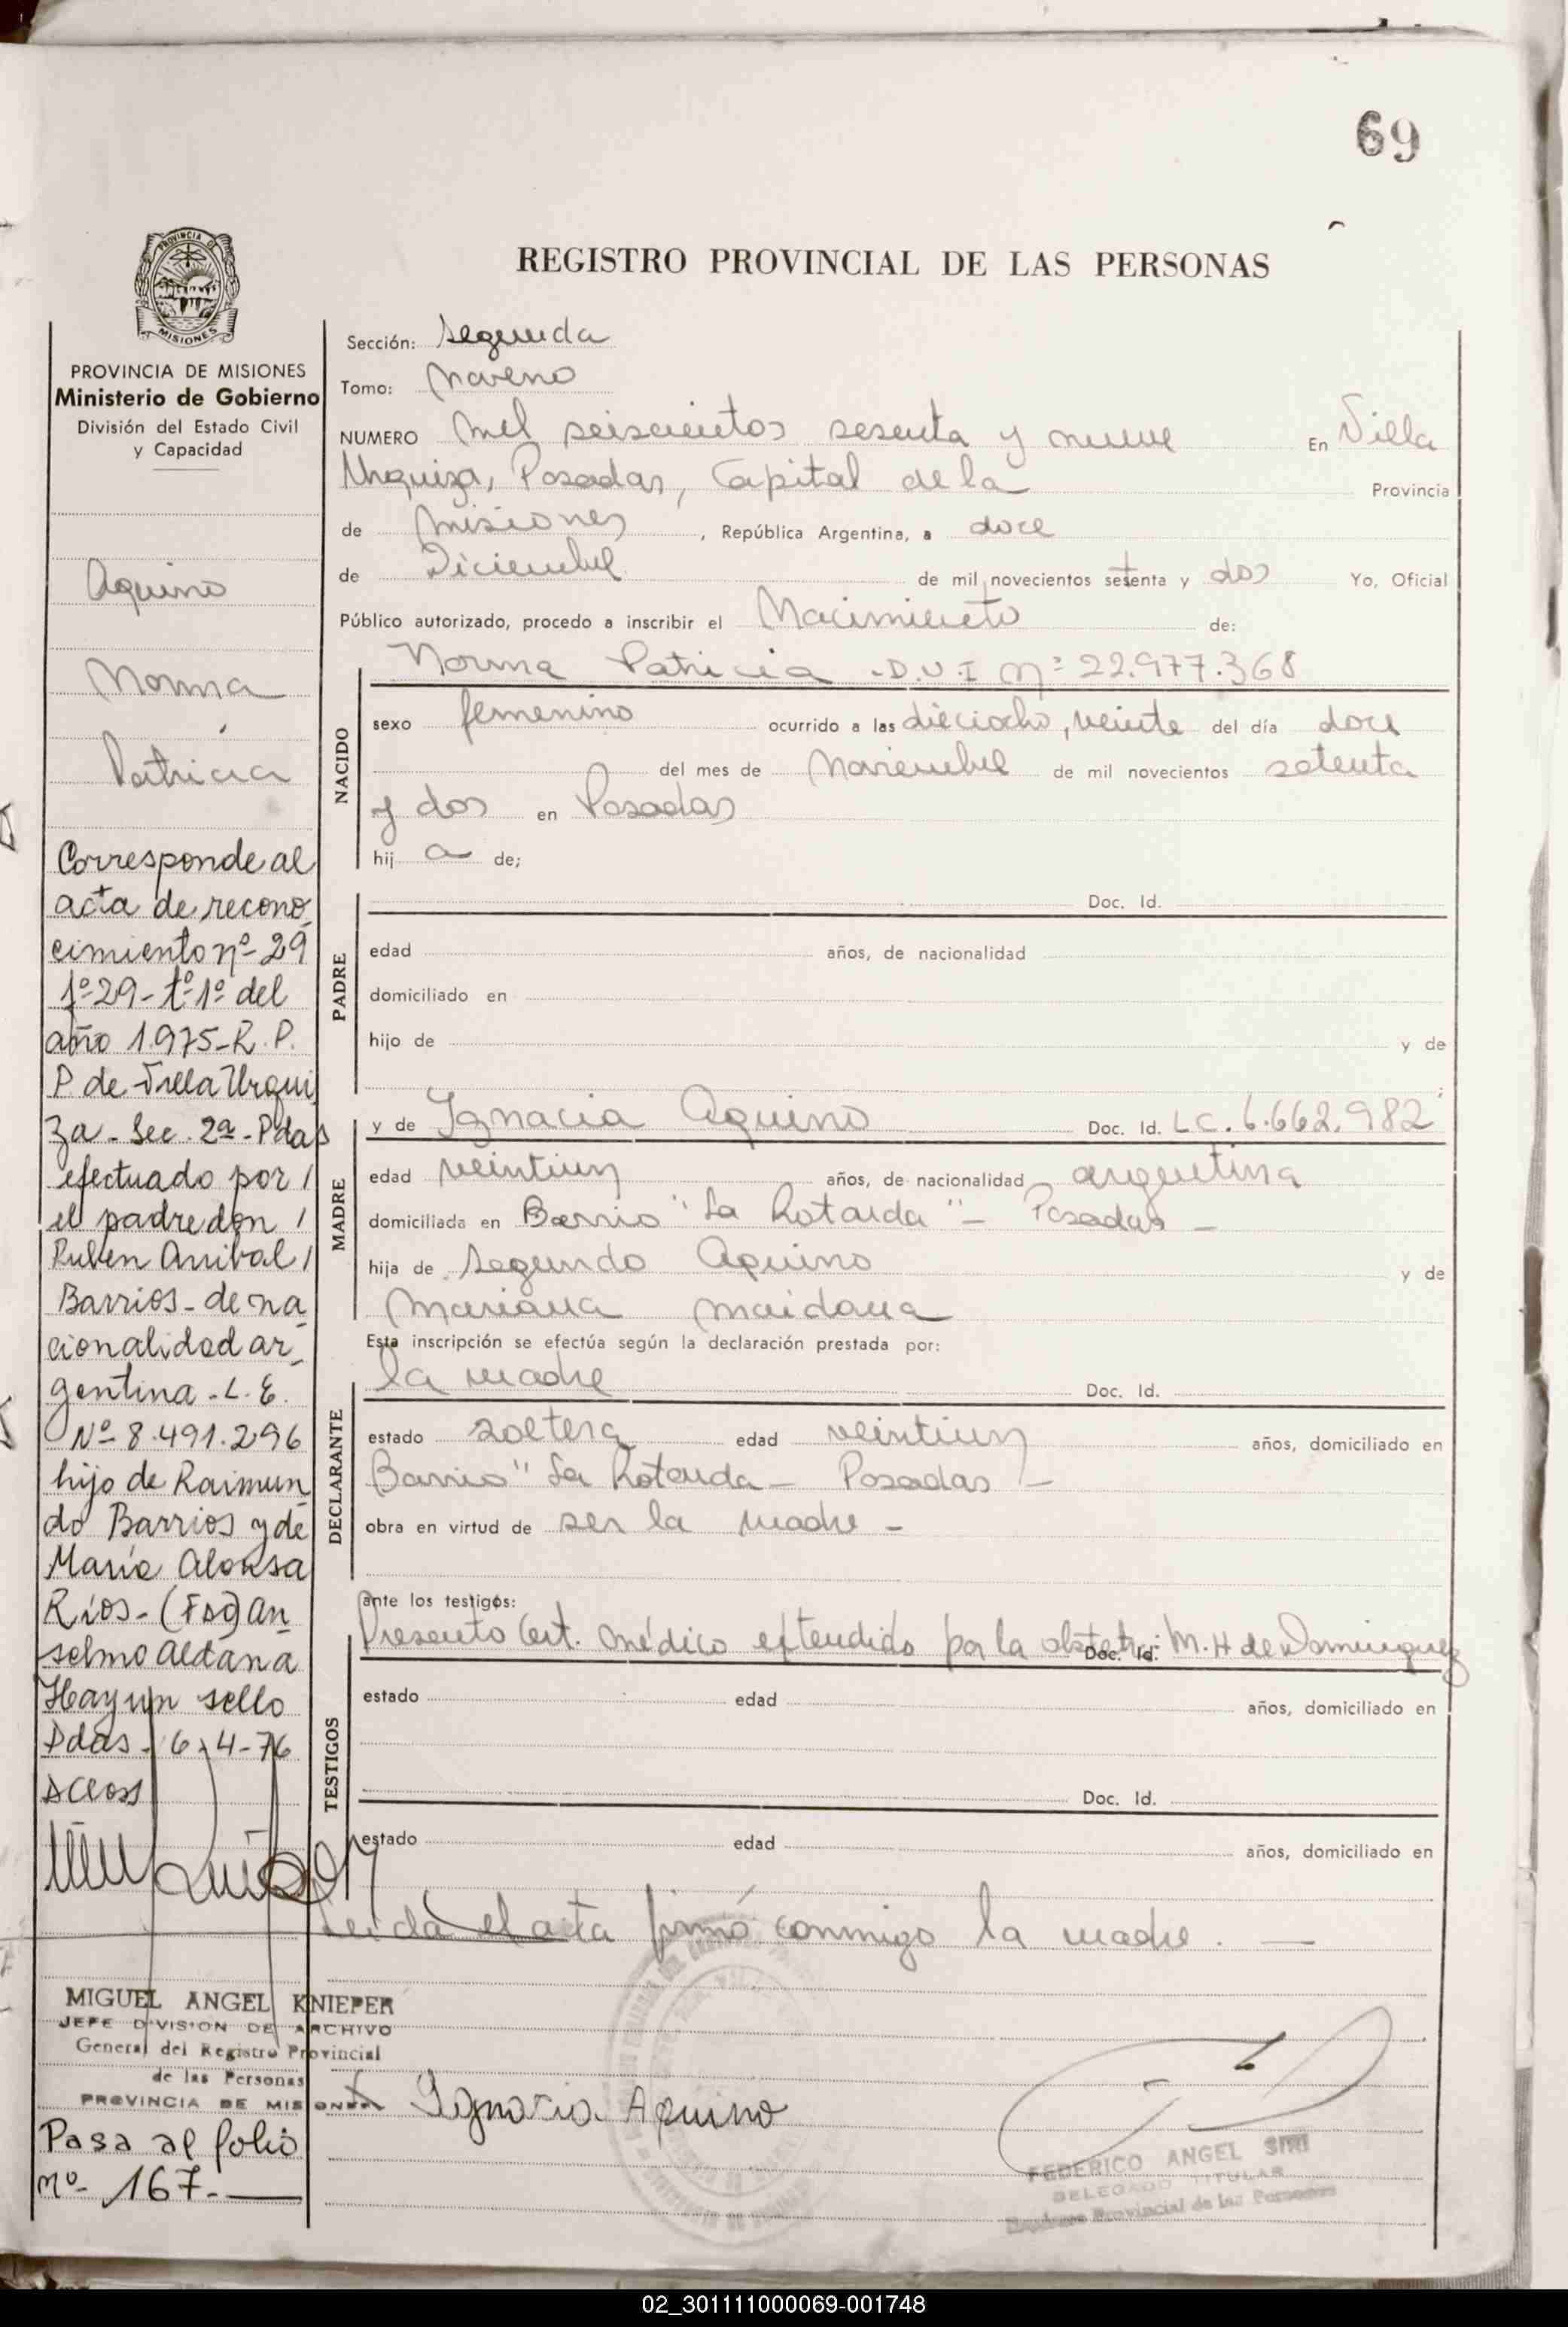 69
REGISTRO PROVINCIAL DE LAS PERSONAS
PROVINCIA DE
MISIONES
PROVINCIA DE MISIONES
Ministerio de Gobierno
División del Estado Civil
y Capacidad
Aquino
Norma
Patricia
Corresponde al
acta de recono
cimiento nº 29
fº 29 - tº 1º del
año 1.975 - R. P.
P. de Villa Urqui
za - Sec. 2ª - Pdas
efectuado por /
el padre don /
Ruben Anibal /
Barrios - de na
cionalidad ar
gentina - L. E.
Nº 8.491.296
hijo de Raimun
do Barrios y de
María Aloisa
Ríos - (Fdo) An
selmo Aldana
Hay un sello
Pdas - 6-4-76
MIGUEL ANGEL KNIEPER
JEFE DIVISION DE ARCHIVO
General del Registro Provincial
de las Personas
PROVINCIA DE MISIONES
Pasa al folio
nº 167.-
Sección: Segunda
Tomo: Noveno
NUMERO Mil seiscientos sesenta y nueve En Villa
Urquiza, Posadas, Capital de la Provincia
de Misiones, República Argentina, a doce
de Diciembre de mil novecientos setenta y dos Yo, Oficial
Público autorizado, procedo a inscribir el Nacimiento de:
Norma Patricia - D.N.I Nº 22.977.368
NACIDO
sexo femenino ocurrido a las dieciocho, veinte del día doce
del mes de Noviembre de mil novecientos setenta
y dos en Posadas
hij a de;
PADRE
Doc. Id.
edad años, de nacionalidad
domiciliado en
hijo de y de
MADRE
y de Ignacia Aquino Doc. Id. LC. 6.662.982
edad veintiun años, de nacionalidad argentina
domiciliada en Barrio "La Rotonda" - Posadas -
hija de Segundo Aquino y de
Mariana Maidana
Esta inscripción se efectúa según la declaración prestada por:
DECLARANTE
la madre Doc. Id.
estado soltera edad veintiun años, domiciliado en
Barrio "La Rotonda - Posadas -
obra en virtud de ser la madre -
ante los testigos:
TESTIGOS
Presento Cert. médico extendido por la obstetr: M. H de Dominguez
Doc. Id.
estado edad años, domiciliado en
Doc. Id.
estado edad años, domiciliado en
Leida el acta firmó conmigo la madre. -
Ignacia Aquino
FEDERICO ANGEL
DELEGADO TITULAR
Registro Provincial de las Personas
02_301111000069-001748